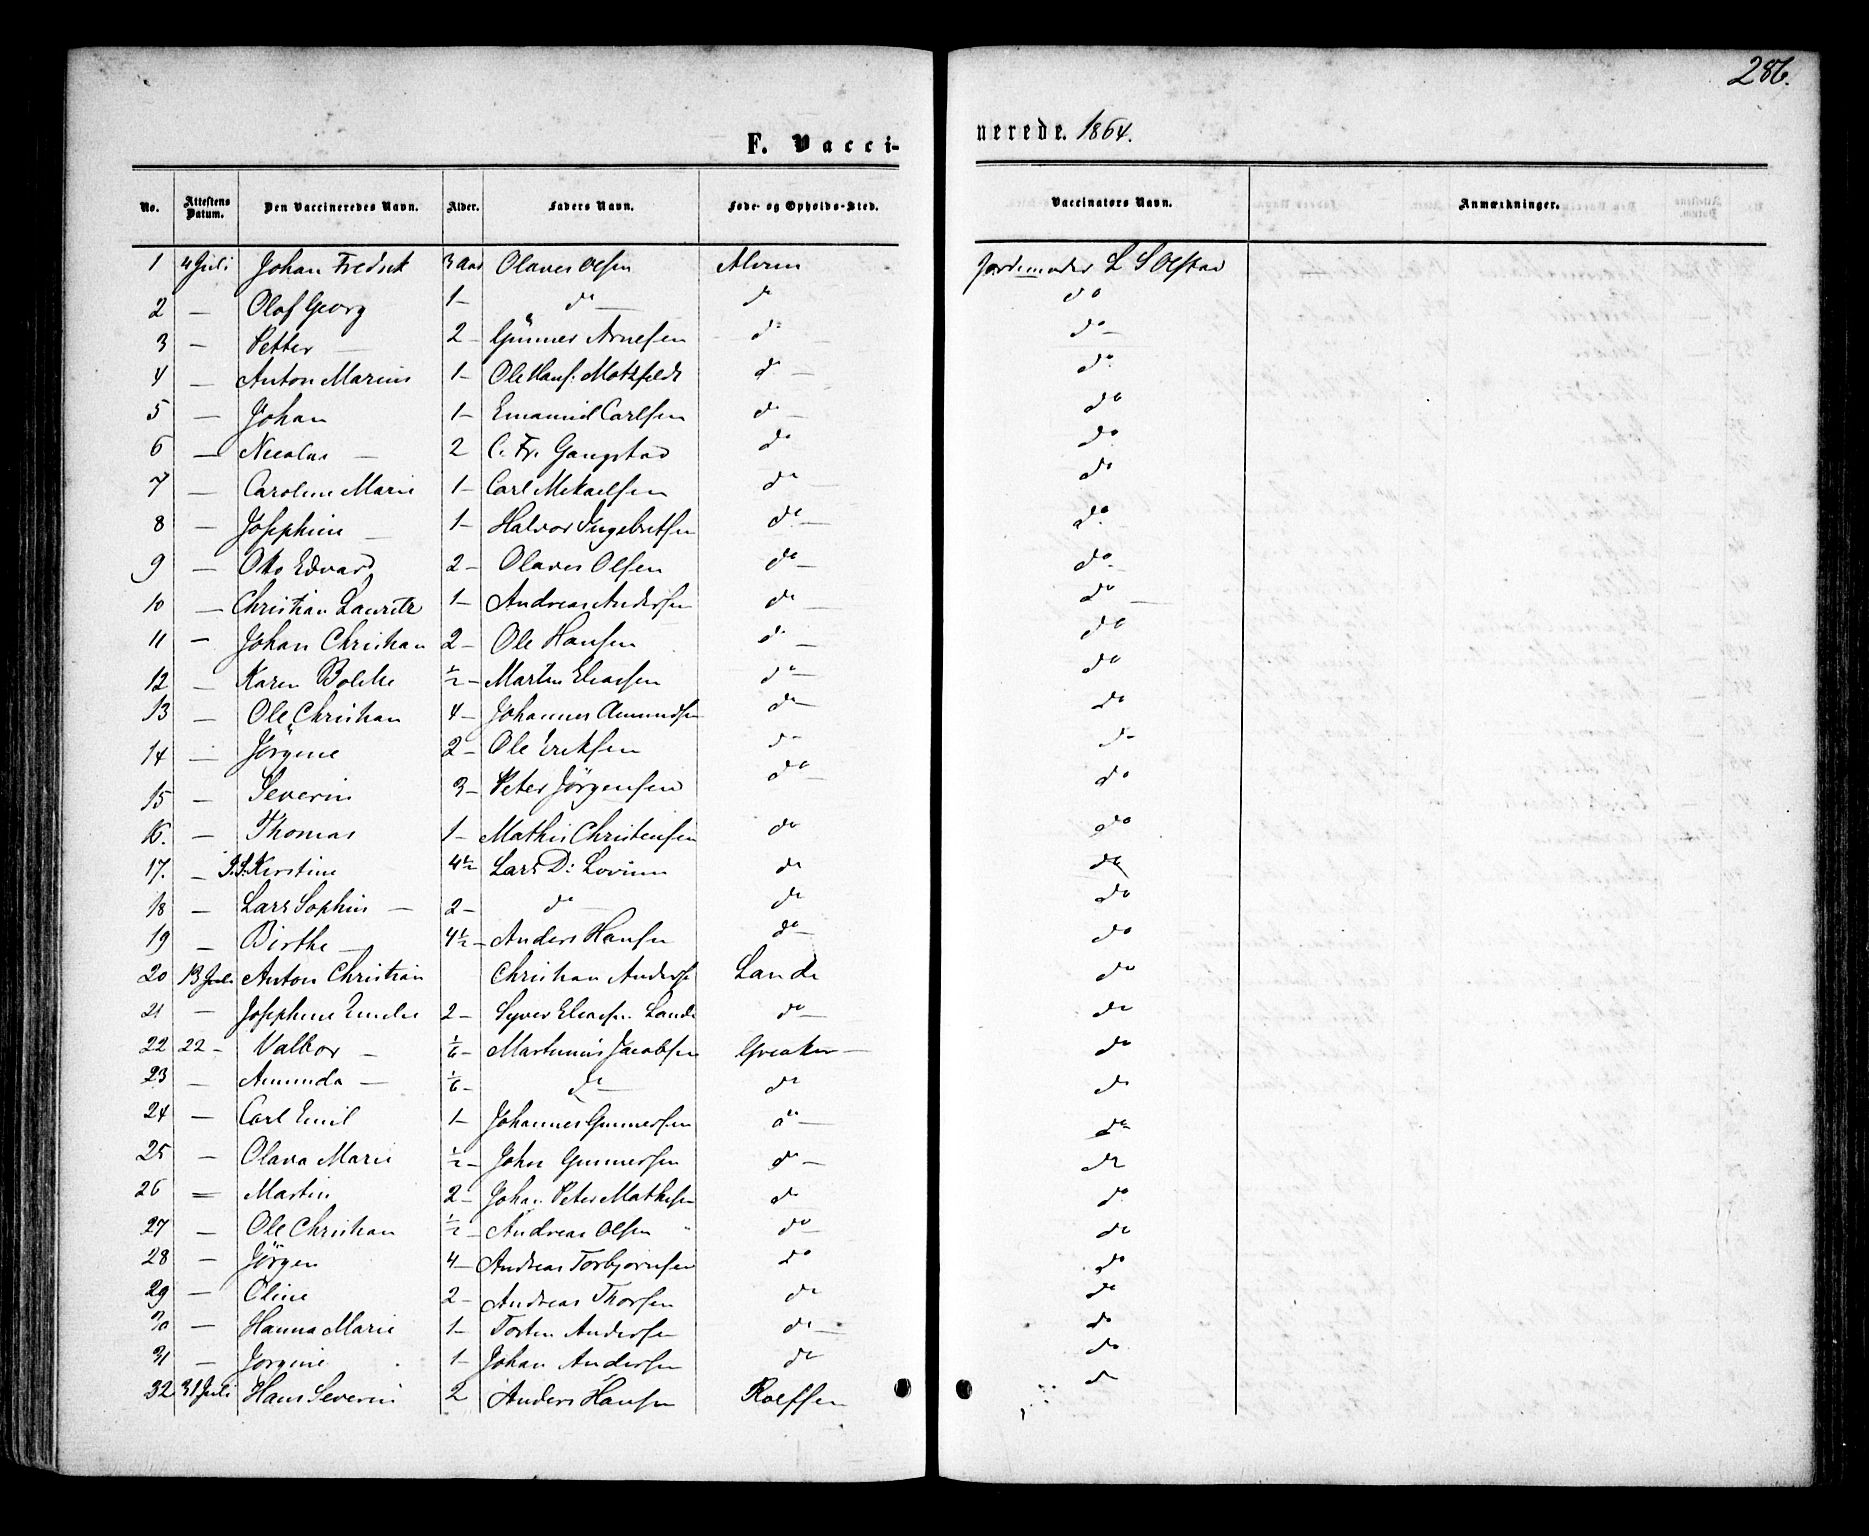 286.
F. Vaccinerede. 1864.
No. Attestens Datum. Den Vaccineredes Navn. Alder. Faders Navn. Føde- og Opholds-Sted. Vaccinators Navn. Anmærkninger.
1 4 Juli Johan Fredrik 3 Aar Olaves Olsen Alvim Jordemoder L S Olstad
2 — Olof Georg 1 — do — do do
3 — Petter — 2 — Gunner Arnesen do do —
4 — Anton Marius 1 — Ole Hans. Motzfeldt do — do
5 — Johan 1 — Emanuel Carlsen do — do
6 — Nicolai — 2 C. Fr. Gangstad do do
7 — Caroline Marie 1 — Carl Mikaelsen do — do
8 — Josephine — 1 — Halvor Ingebretsen do — do
9 — Otto Edvard 2 — Olaves Olsen do — do —
10 — Christian Lauritz 1 — Andreas Andersen do — do —
11 — Johan Christian 2 — Ole Hansen do — do
12 — Karen Bolette ½ — Martin Eliassen do — do
13 — Ole Christian 4 — Johannes Amundsen do — do
14 — Jörgine 2 — Ole Eriksen do do
15 — Severin 3 — Peter Jörgensen do — do
16. — Thomas 1 — Mathis Christensen do do
17. — Kirstine 4½ Lars D: do do
18 — Lars Sophus — 2 — do — do do
19 — Birthe — 4½ — Anders Hansen do — do
20 13 Juli Anton Christian Christian Anders Lande do
21 — Josephine Emilie 2 — Syver Eliassen Lande do — do
22 22 — Valbor — 1/6 — Martinius Jacobsen Greaker — do
23 — Amunda — 1/6 — do — do do
24 — Carl Emil 1 — Johannes Gunnersen do — do
25 — Olava Marie ½ — Johan Gunnersen do — do
26 = Martin 2 — Johan Peter Mathisen do do
27 — Ole Christian ½ — Andreas Olsen do — do
28 — Jörgen 4 — Andreas Torbjornsen do do
29 — Oline 2 — Andreas Thorsen do do
30 — Hanna Marie 1 — Torsten Andersen do — do
31 — Jorgine 1 — Johan Andersen do do
32 31 Juli Hans Severin 2 Anders Hansen Rolfsen do